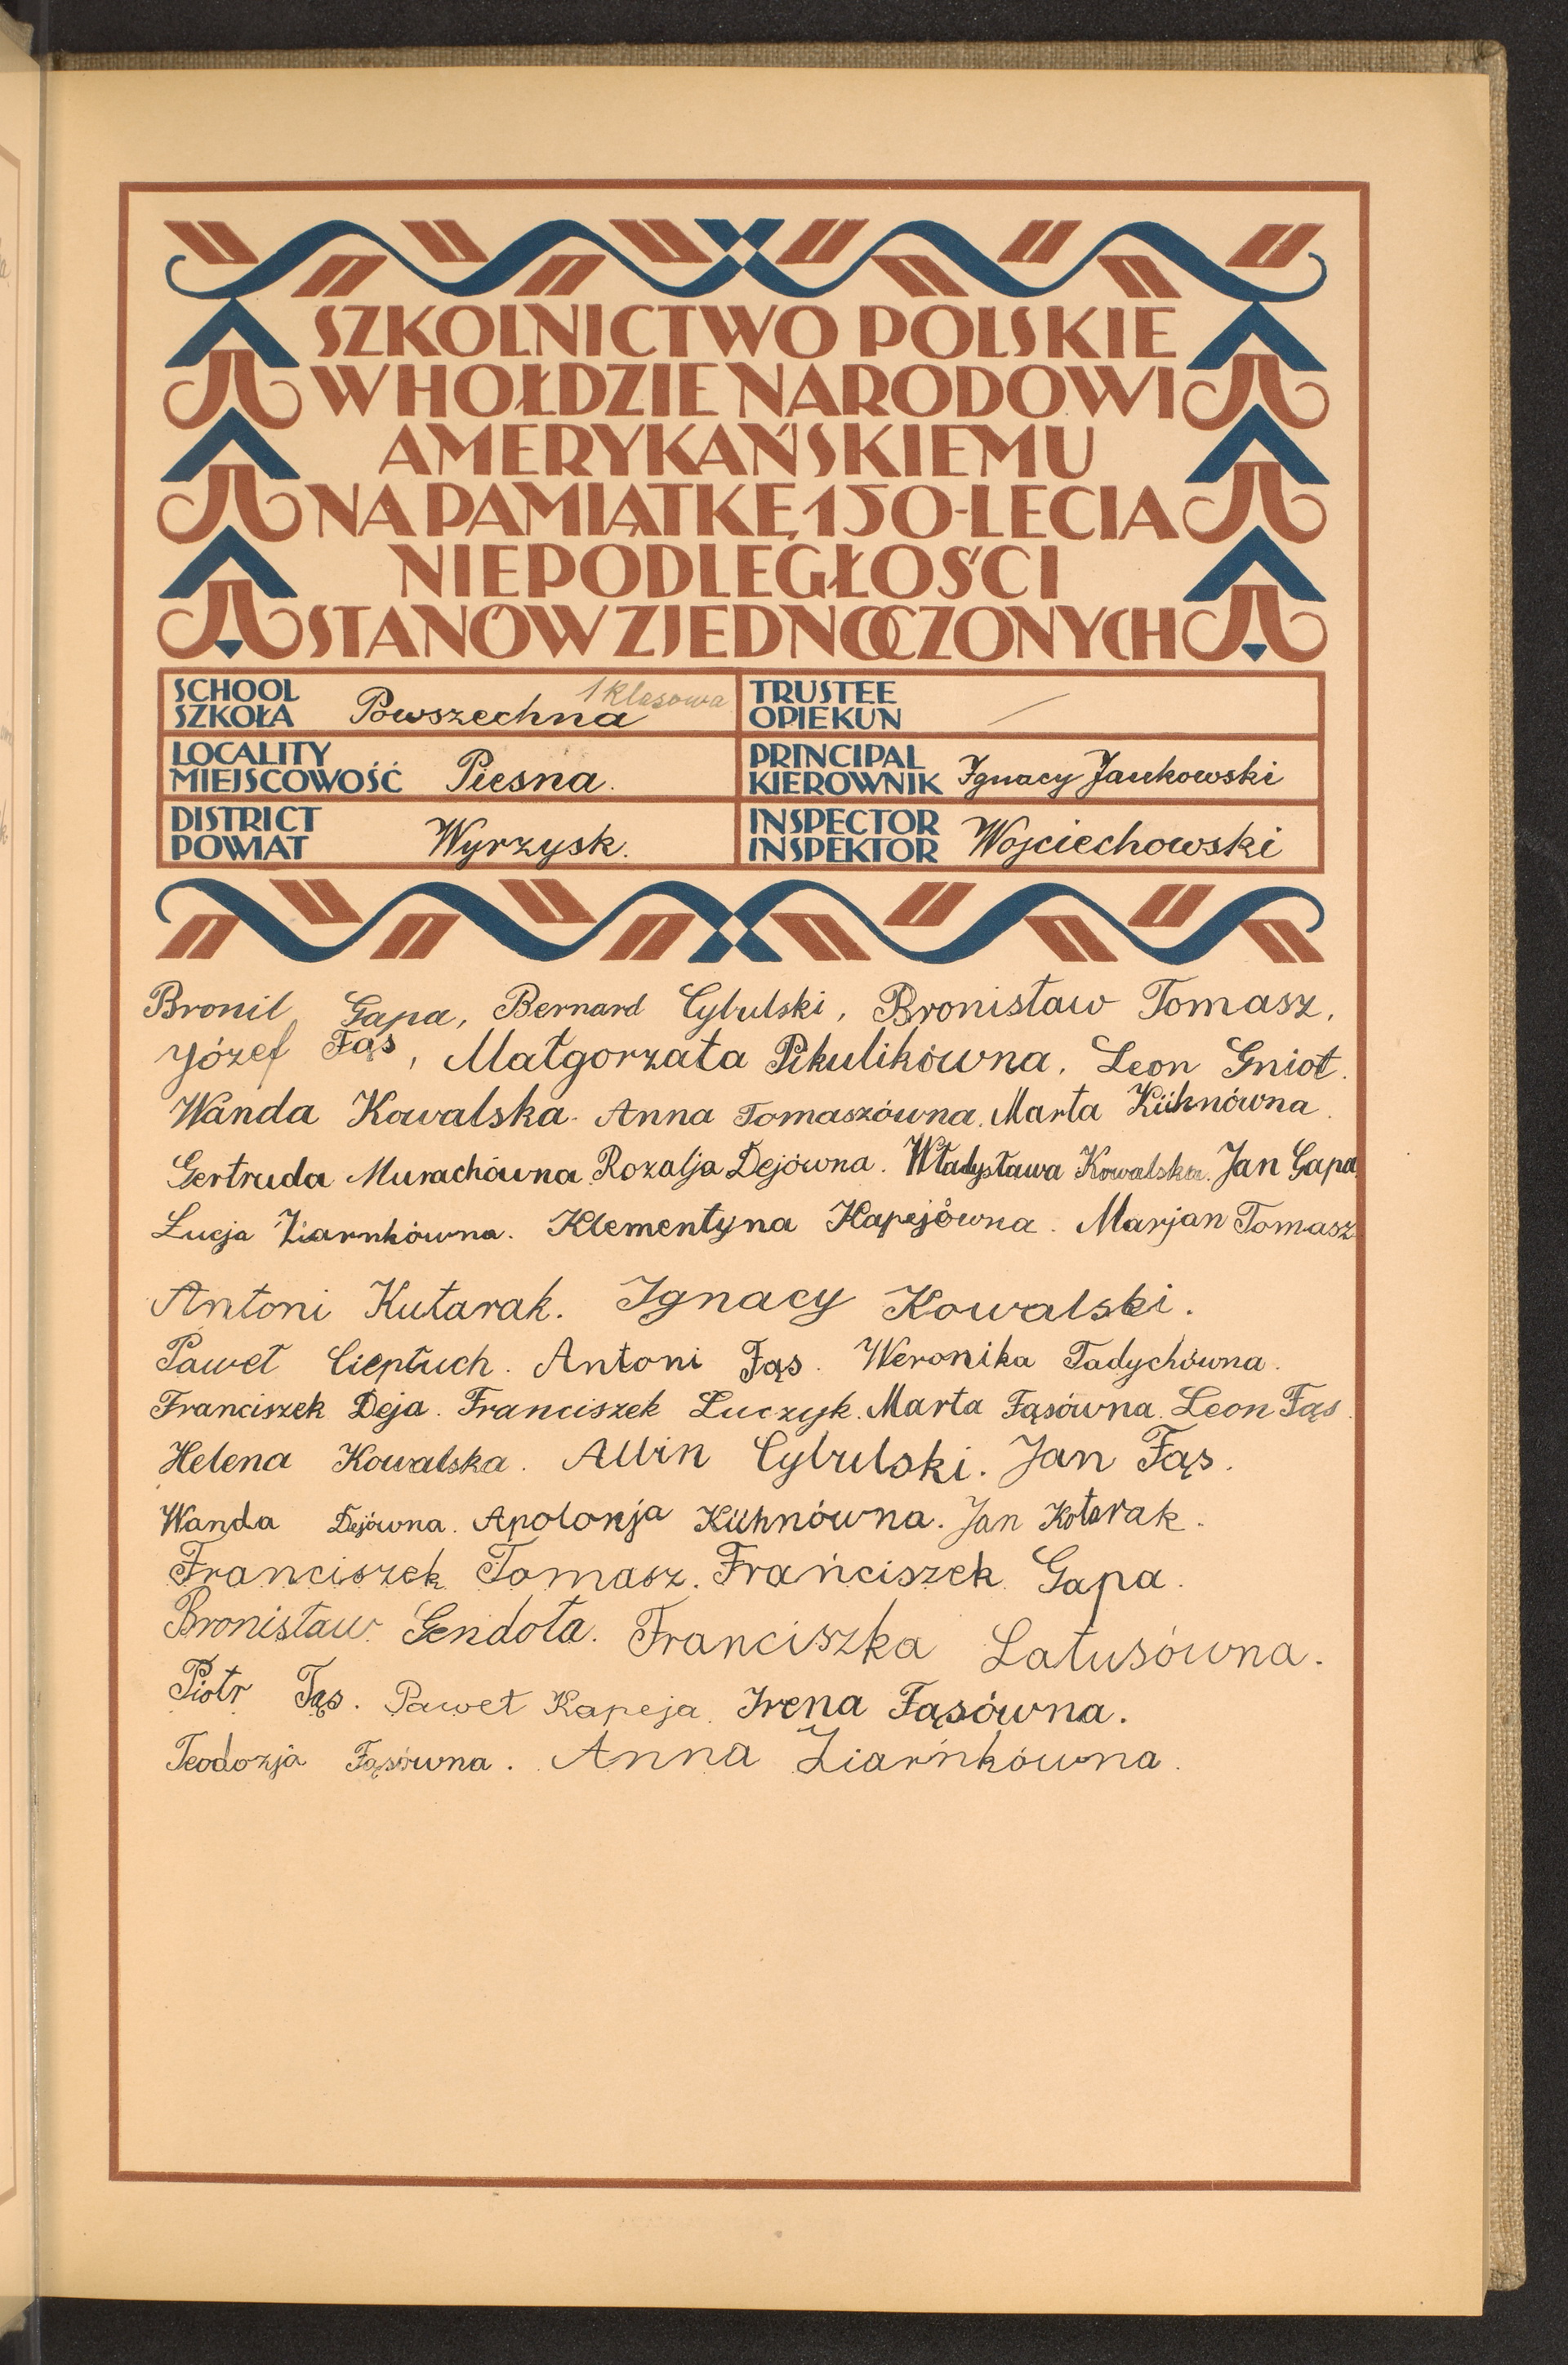 SZKOLNICTWO POLSKIE
W HOŁDZIE NARODOWI
AMERYKAŃSKIEMU
NA PAMIĄTKĘ 150-LECIA
NIEPODLEGŁOŚCI
STANÓW ZJEDNOCZONYCH
SCHOOL
SZKOŁA Powszechna 1 klasowa
TRUSTEE
OPIEKUN —
LOCALITY
MIEJSCOWOŚĆ Piesna.
PRINCIPAL
KIEROWNIK Ignacy Jankowski
DISTRICT
POWIAT Wyrzysk.
INSPECTOR
INSPEKTOR Wojciechowski
Bronil Gapa, Bernard Cybulski, Bronisław Tomasz,
Józef Fąs, Małgorzata Pikulikówna, Leon Gniot.
Wanda Kowalska. Anna Tomaszówna. Marta Kühnówna.
Gertruda Murachówna. Rozalja Dejówna. Władysława Kowalska. Jan Gapa.
Łucja Ziarnkówna. Klementyna Kapejówna. Marjan Tomasz
Antoni Kutarak. Ignacy Kowalski.
Paweł Ciepłuch. Antoni Fąs. Weronika Tadychówna.
Franciszek Deja. Franciszek Łuczyk. Marta Fąsówna. Leon Fąs.
Helena Kowalska. Albin Cybulski. Jan Fąs.
Wanda Dejówna. Apolonja Kühnówna. Jan Kotarak.
Franciszek Tomasz. Franciszek Gapa.
Bronisław Gendoła. Franciszka Latusówna.
Piotr Fąs. Paweł Kapeja. Irena Fąsówna.
Teodozja Fąsówna. Anna Ziarńkówna.